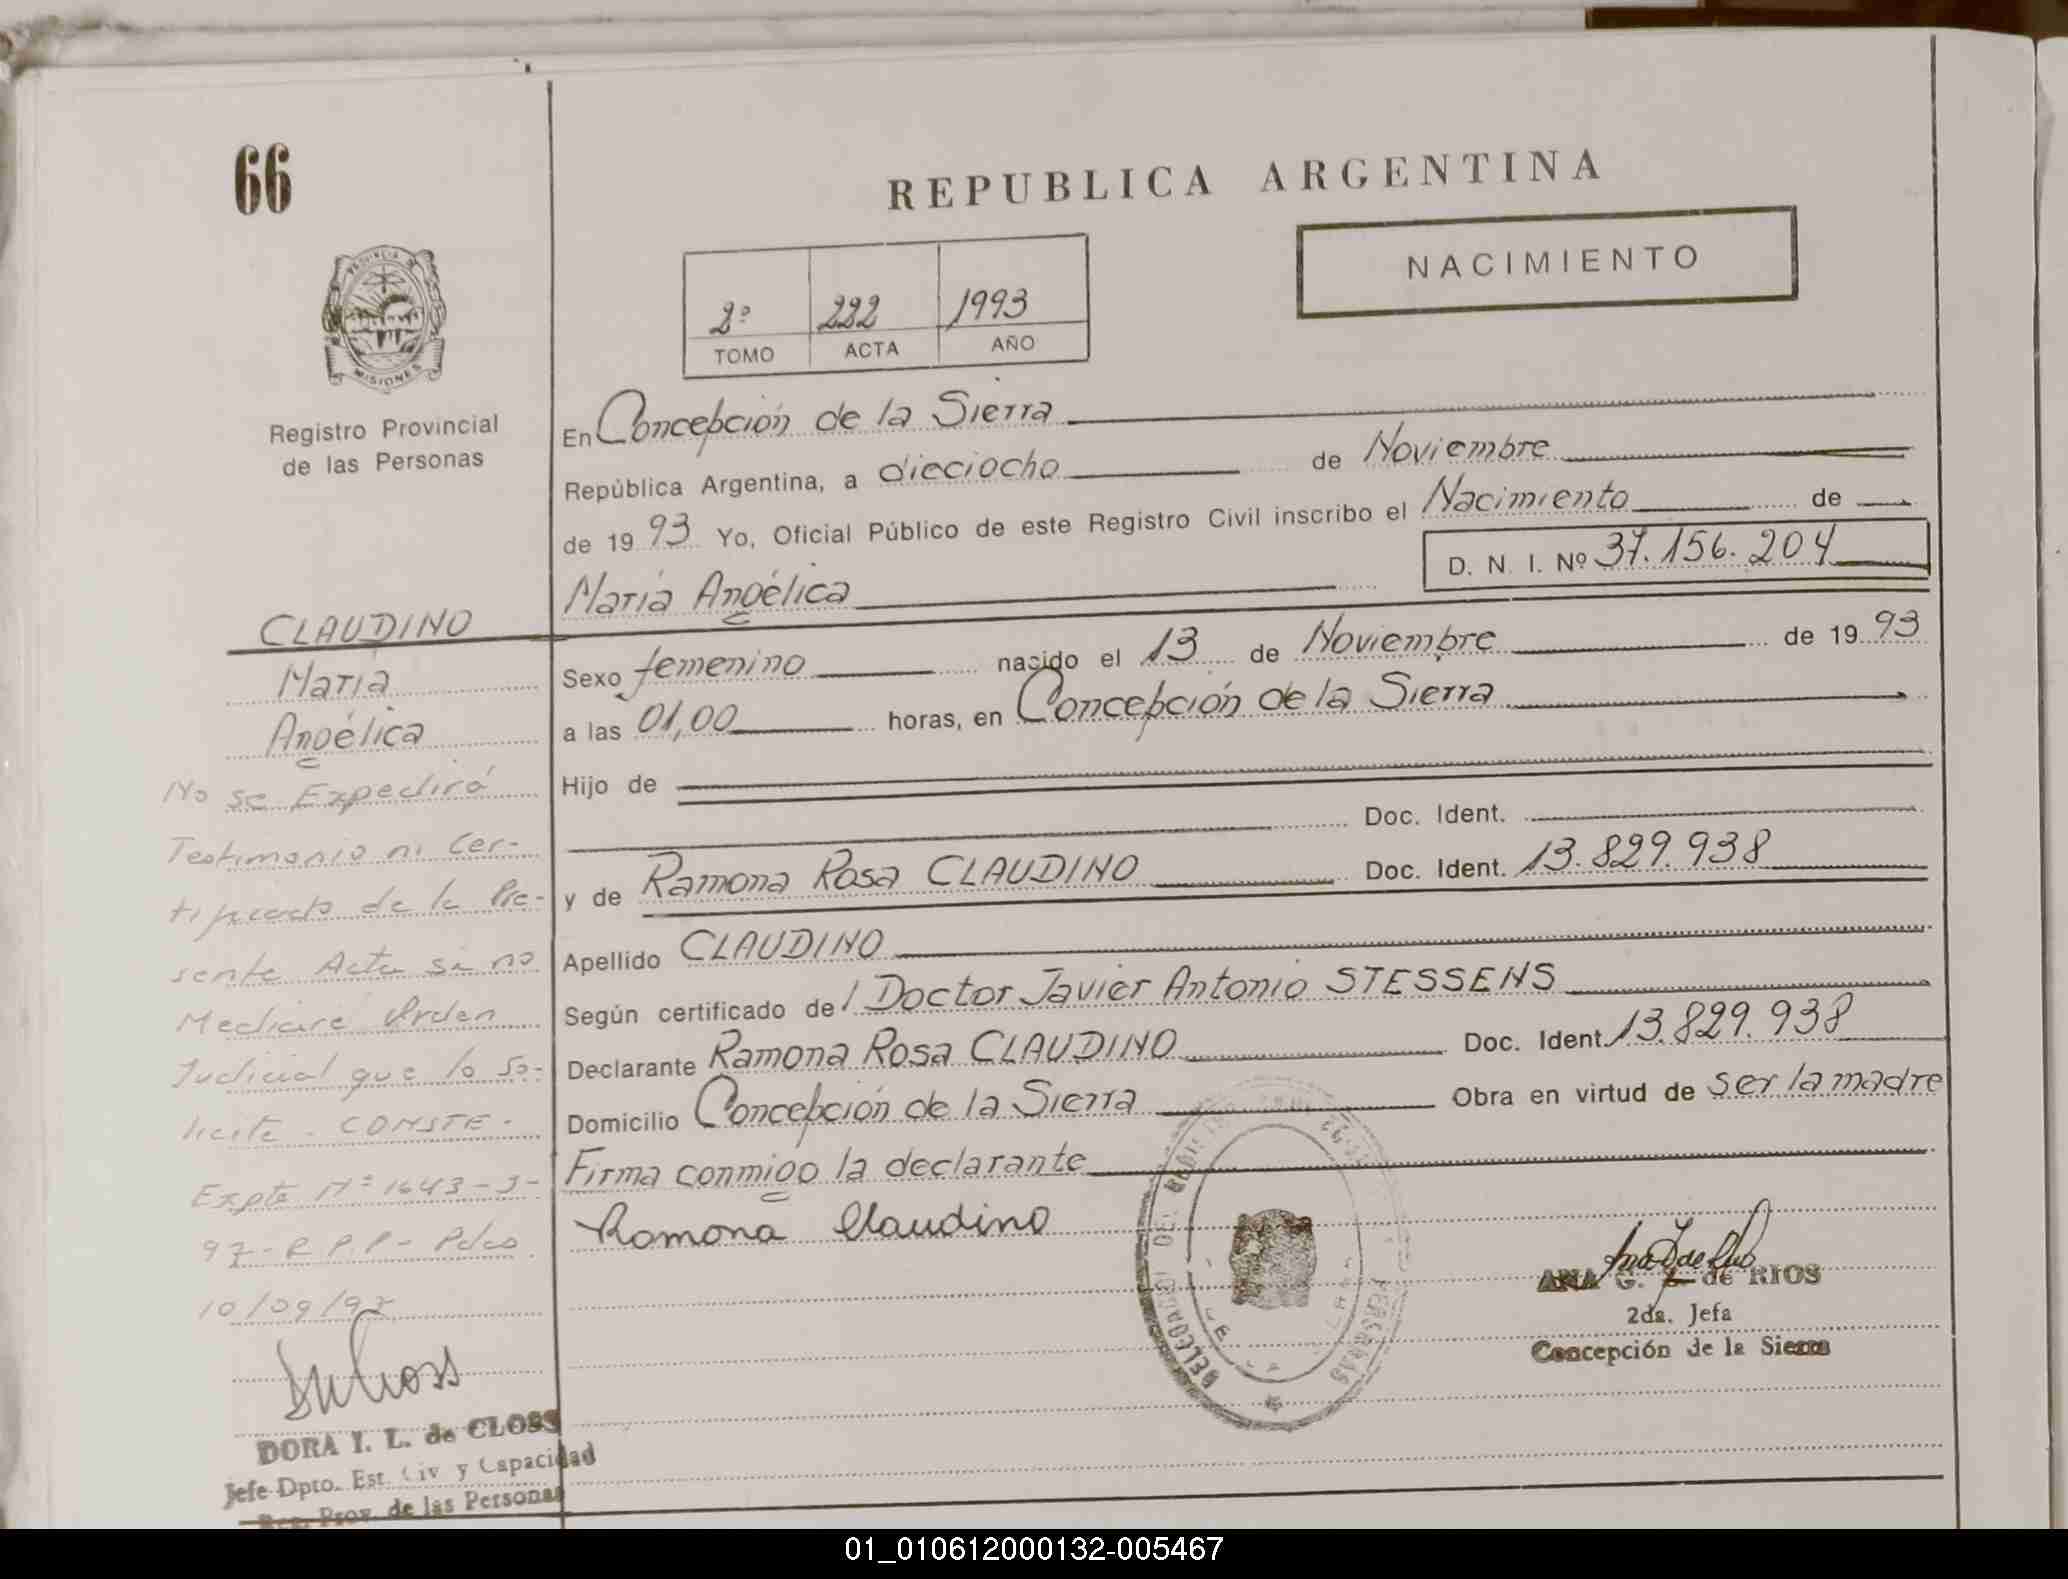 66
REPUBLICA ARGENTINA
NACIMIENTO
2º 222 1993
TOMO ACTA AÑO
PROVINCIA DE
MISIONES
Registro Provincial
de las Personas
En Concepción de la Sierra
República Argentina, a dieciocho de Noviembre
de 1993 Yo, Oficial Público de este Registro Civil inscribo el Nacimiento de
D. N. I. Nº 37.156.204
María Angélica
CLAUDINO
María
Angélica
Sexo femenino nacido el 13 de Noviembre de 1993
a las 01,00 horas, en Concepción de la Sierra
Hijo de
Doc. Ident.
y de Ramona Rosa CLAUDINO Doc. Ident. 13.829.938
Apellido CLAUDINO
Según certificado del Doctor Javier Antonio STESSENS
Declarante Ramona Rosa CLAUDINO Doc. Ident. 13.829.938
Domicilio Concepción de la Sierra Obra en virtud de ser la madre
Firma conmigo la declarante
Ramona Claudino
No se Expedirá
Testimonio ni Cer-
tificado de la Pre-
sente Acta si no
Mediare Orden
Judicial que lo So-
licite - CONSTE -
Expte Nº 1643-J-
97 - R.P.P - Pdas
10/09/97
DORA I. L. de CLOSS
Jefe Dpto. Est. Civ y Capacidad
Reg. Prov. de las Personas
ANA G. de RIOS
2da. Jefa
Concepción de la Sierra
01_010612000132-005467